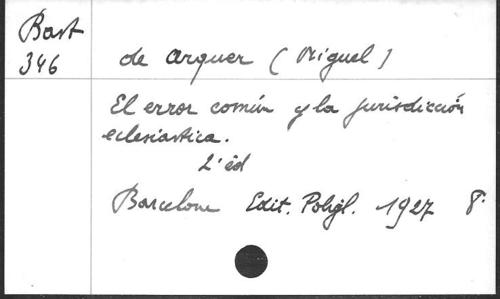 Bast
346
de Arquer (Miguel)
El error común y la jurisdicción
eclesiastica.
2' éd
Barcelone Edit. Poligl. 1927 8°